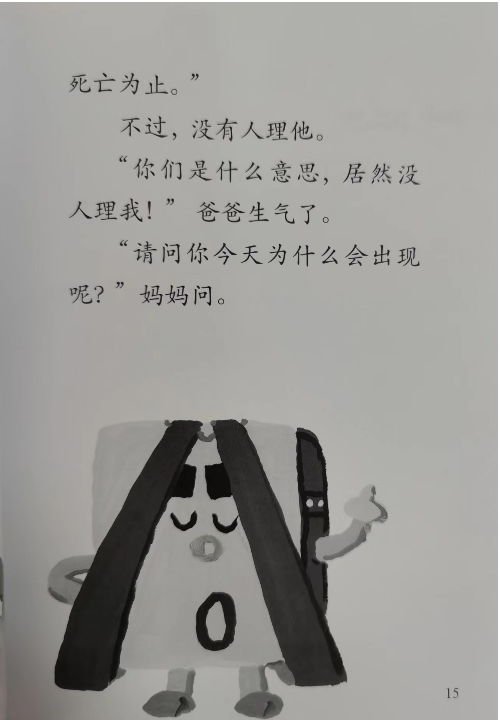 死亡为止。”
不过，没有人理他。
“你们是什么意思，居然没
人理我！” 爸爸生气了。
“请问你今天为什么会出现
呢？” 妈妈问。
15